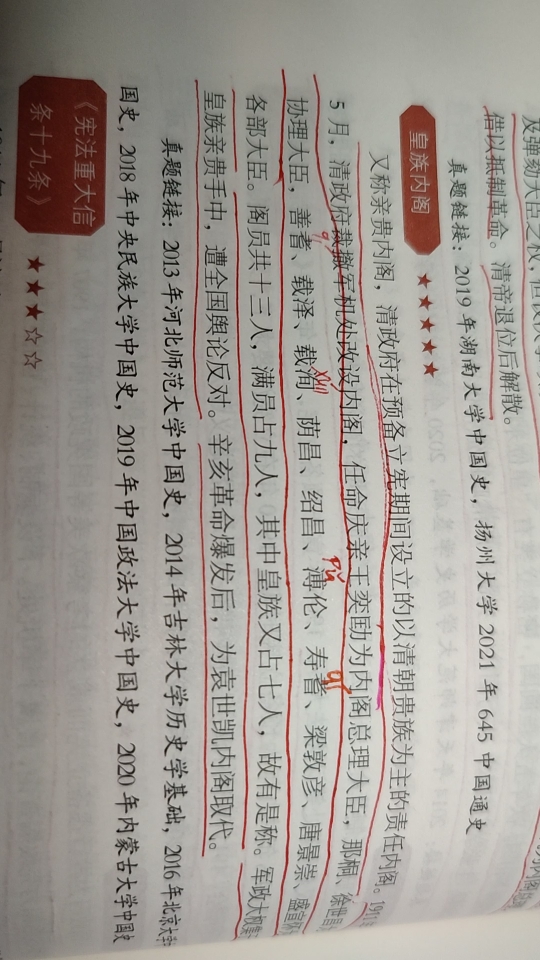 及弹劾大臣之权，但
借以抵制革命。清帝退位后解散。
真题链接：2019年湖南大学中国史，扬州大学2021年645中国通史
皇族内阁 ★★★★★
又称亲贵内阁，清政府在预备立宪期间设立的以清朝贵族为主的责任内阁。1911年
5月，清政府裁撤军机处改设内阁，任命庆亲王奕劻为内阁总理大臣，那桐、徐世昌为
协理大臣，善耆、载泽、载洵、荫昌、绍昌、溥伦、寿耆、梁敦彦、唐景崇、盛宣怀为
各部大臣。阁员共十三人，满员占九人，其中皇族又占七人，故有是称。军政大权集
皇族亲贵手中，遭全国舆论反对。辛亥革命爆发后，为袁世凯内阁取代。
真题链接：2013年河北师范大学中国史，2014年吉林大学历史学基础，2016年北京大学
国史，2018年中央民族大学中国史，2019年中国政法大学中国史，2020年内蒙古大学中国史
《宪法重大信
条十九条》 ★★★☆☆